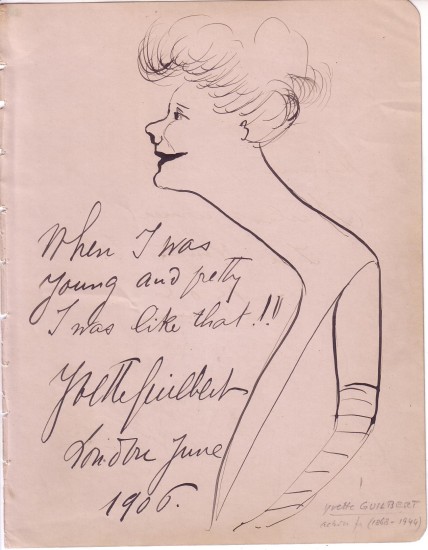 When I was
young and pretty
I was like that!!!
Yvette Guilbert
London June
1906.
Yvette GUILBERT
(1868-1944)